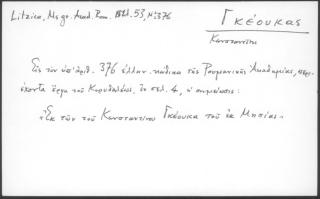 Litzica, Ms gr. Acad. Rom. σελ. 53, Nο 376
Γκέουκας
Κωνσταντῖνος
Εἰς τὸν ὑπ' ἀριθ. 376 ἑλλην. κώδικα τῆς Ρουμανικῆς Ἀκαδημίας, περι-
έχοντα ἔργα τοῦ Κορυδαλέως, ἐν σελ. 4, ἡ σημείωσις:
«Ἐκ τῶν τοῦ Κωνσταντίνου Γκέουκα τοῦ ἐκ